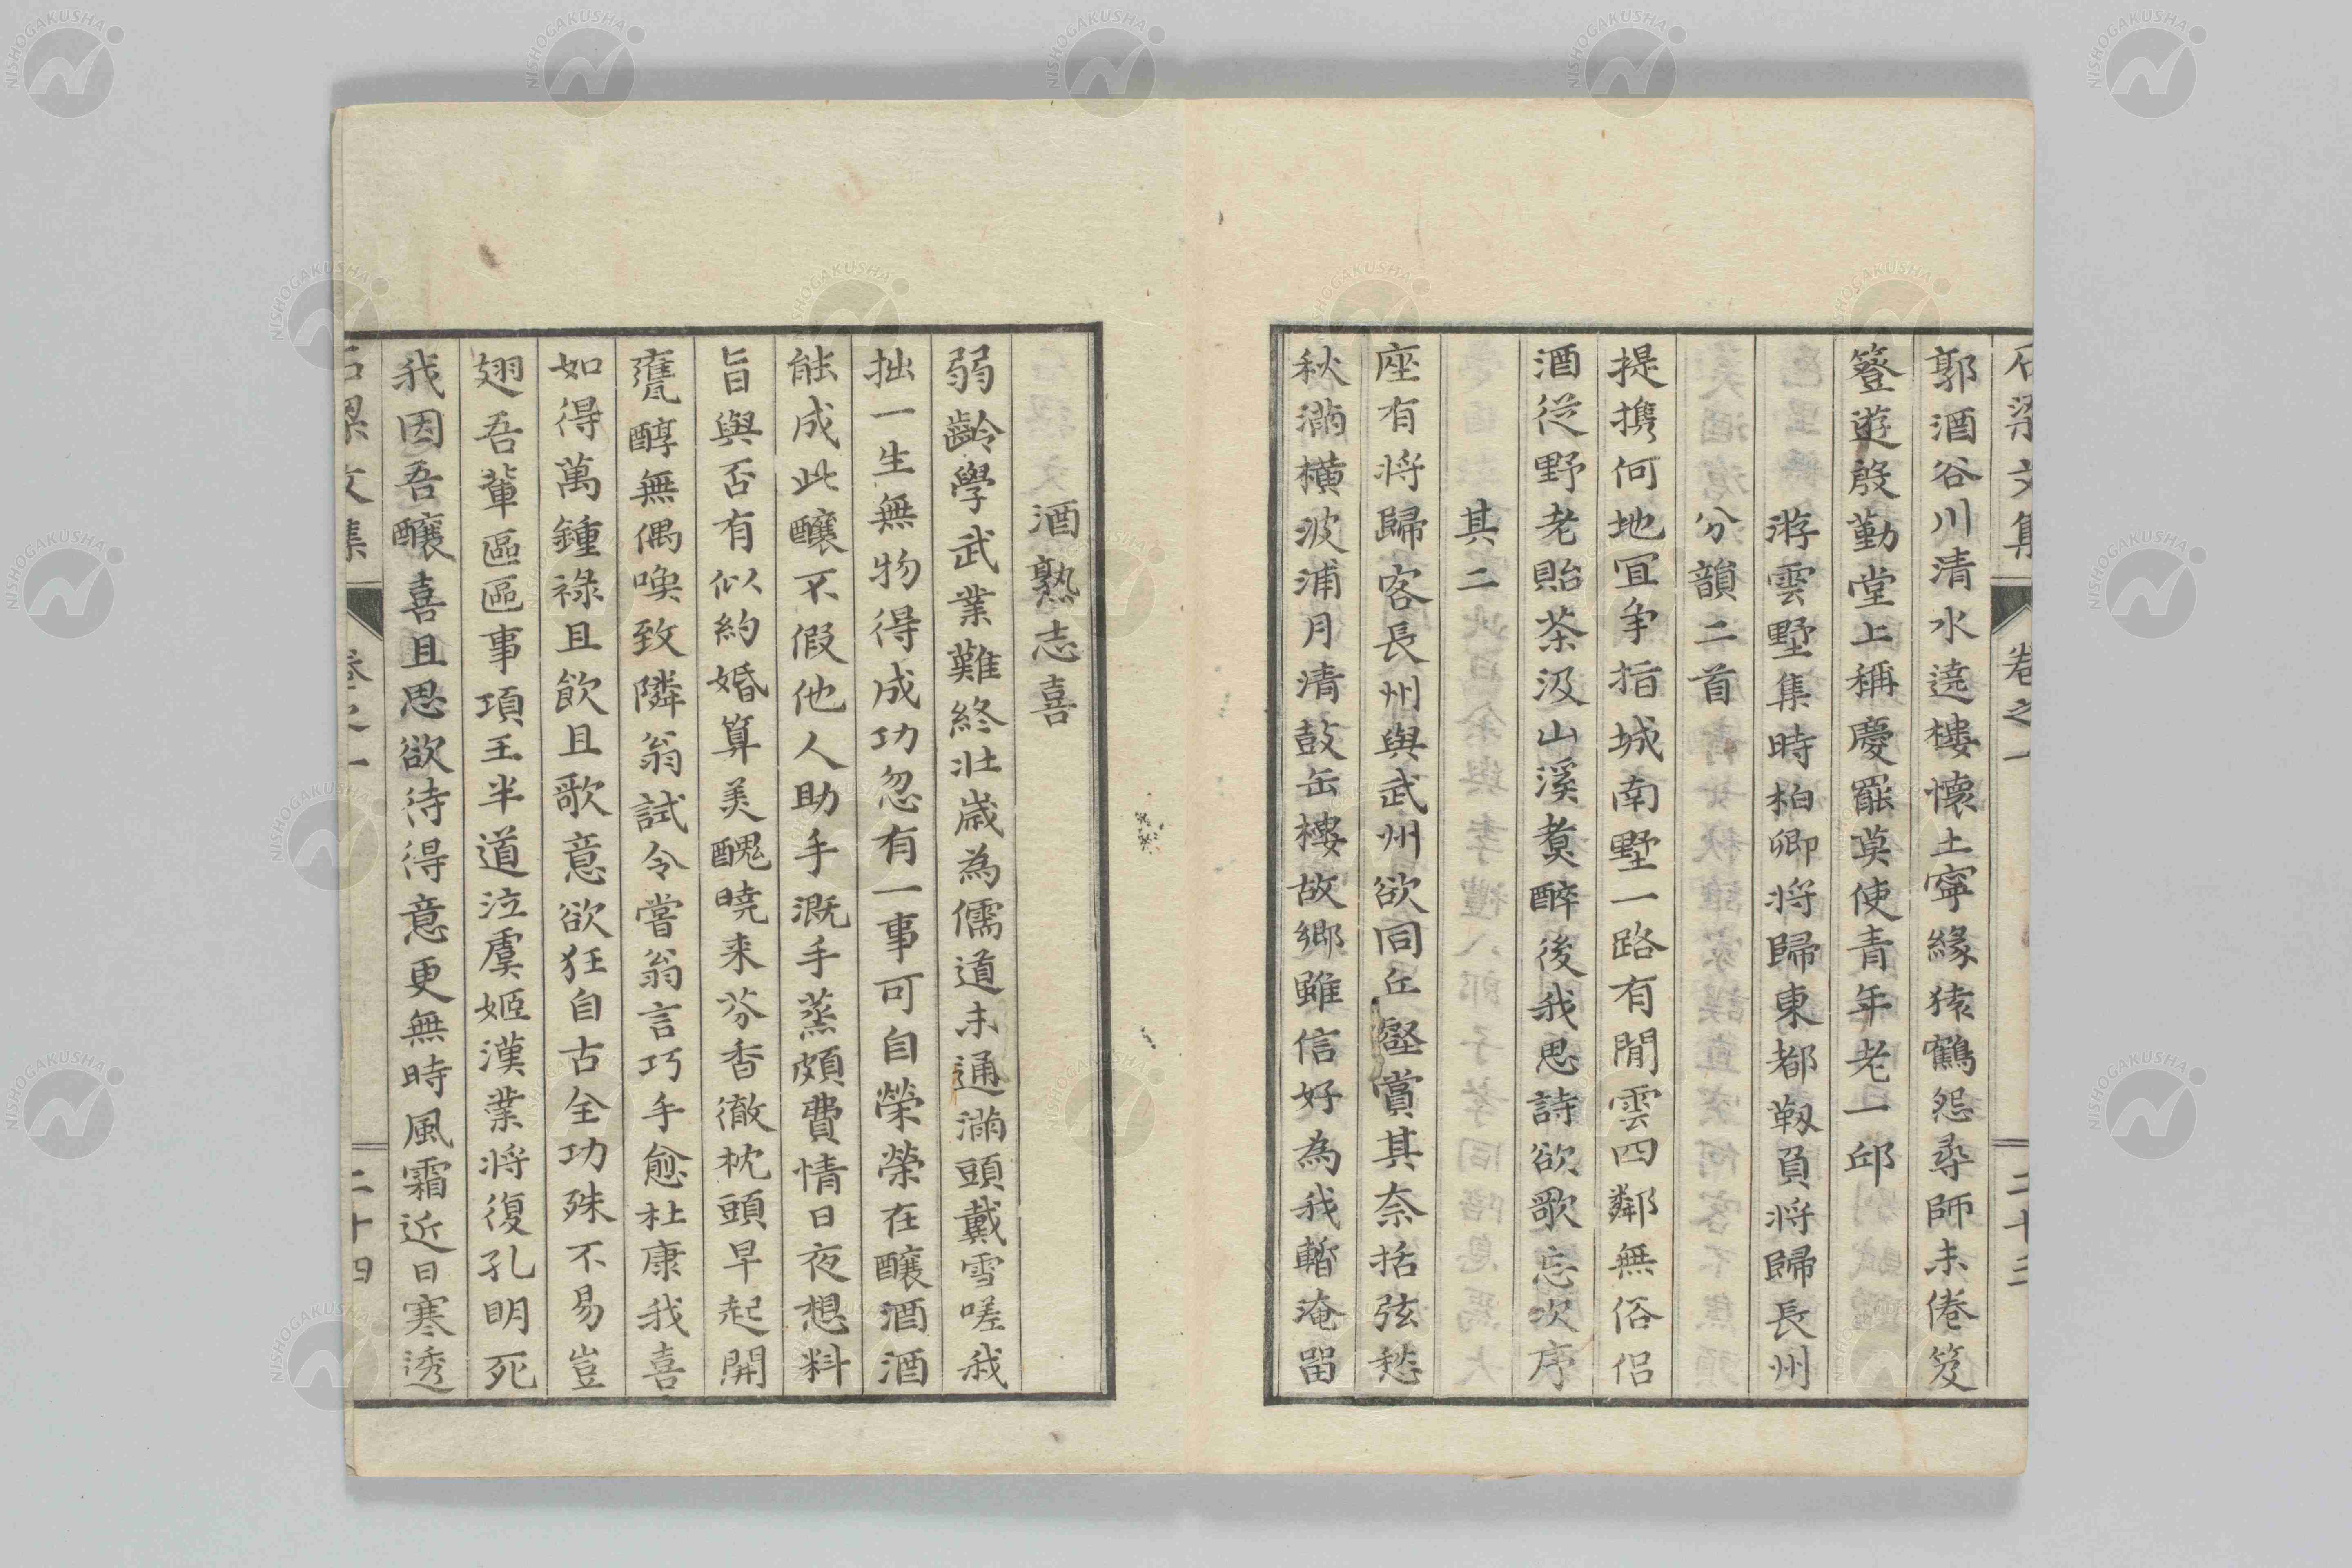 石梁文集 卷之一 二十三
郭酒谷川清水遶樓懷土寧緣猿鶴怨尋師未倦笈
簦遊殷勤堂上稱慶罷莫使青年老一邱
游雲墅集時柏卿將歸東都靱負將歸長州
分韻二首
提携何地冝爭指城南墅一路有閒雲四鄰無俗侶
酒従野老貽茶汲山溪煑醉後我思詩欲歌忘次序
其二
座有将歸客長州與武州欲同丘壑賞其奈括弦愁
秋滿横波浦月清鼓缶樓故郷雖信好為我暫淹畱
酒熟志喜
弱齡學武業難終壮歳為儒道未通滿頭戴雪嗟我
拙一生無物得成功忽有一事可自榮榮在釀酒酒
能成此釀不假他人助手漑手蒸頗費情日夜想料
旨與否有似約婚算美醜曉来芬香徹枕頭早起開
甕醇無偶喚致隣翁試令嘗翁言巧手愈杜康我喜
如得萬鍾祿且飲且歌意欲狂自古全功殊不易豈
翅吾輩區區事項王半道泣虞姬漢業将復孔明死
我因吾釀喜且思欲待得意更無時風霜近日寒透
石梁文集 卷之一 二十四
NISHOGAKUSHA